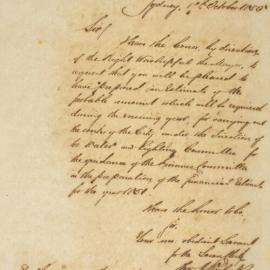 Sydney, 1st October 1850
Sir
I have the honor, by direction
of the Right Worshipful the Mayor, to
request that you will be pleased to
have prepared an Estimate of the
probable amount which will be required
during the ensuing year, for carrying out
the works of the City under the direction of
the Water and Lighting Committee for
the guidance of the Finance Committee
in the preparation of the Financial Estimate
for the year 1851.
I have the honor to be,
Sir,
Your most obedient Servant
for the Town Clerk